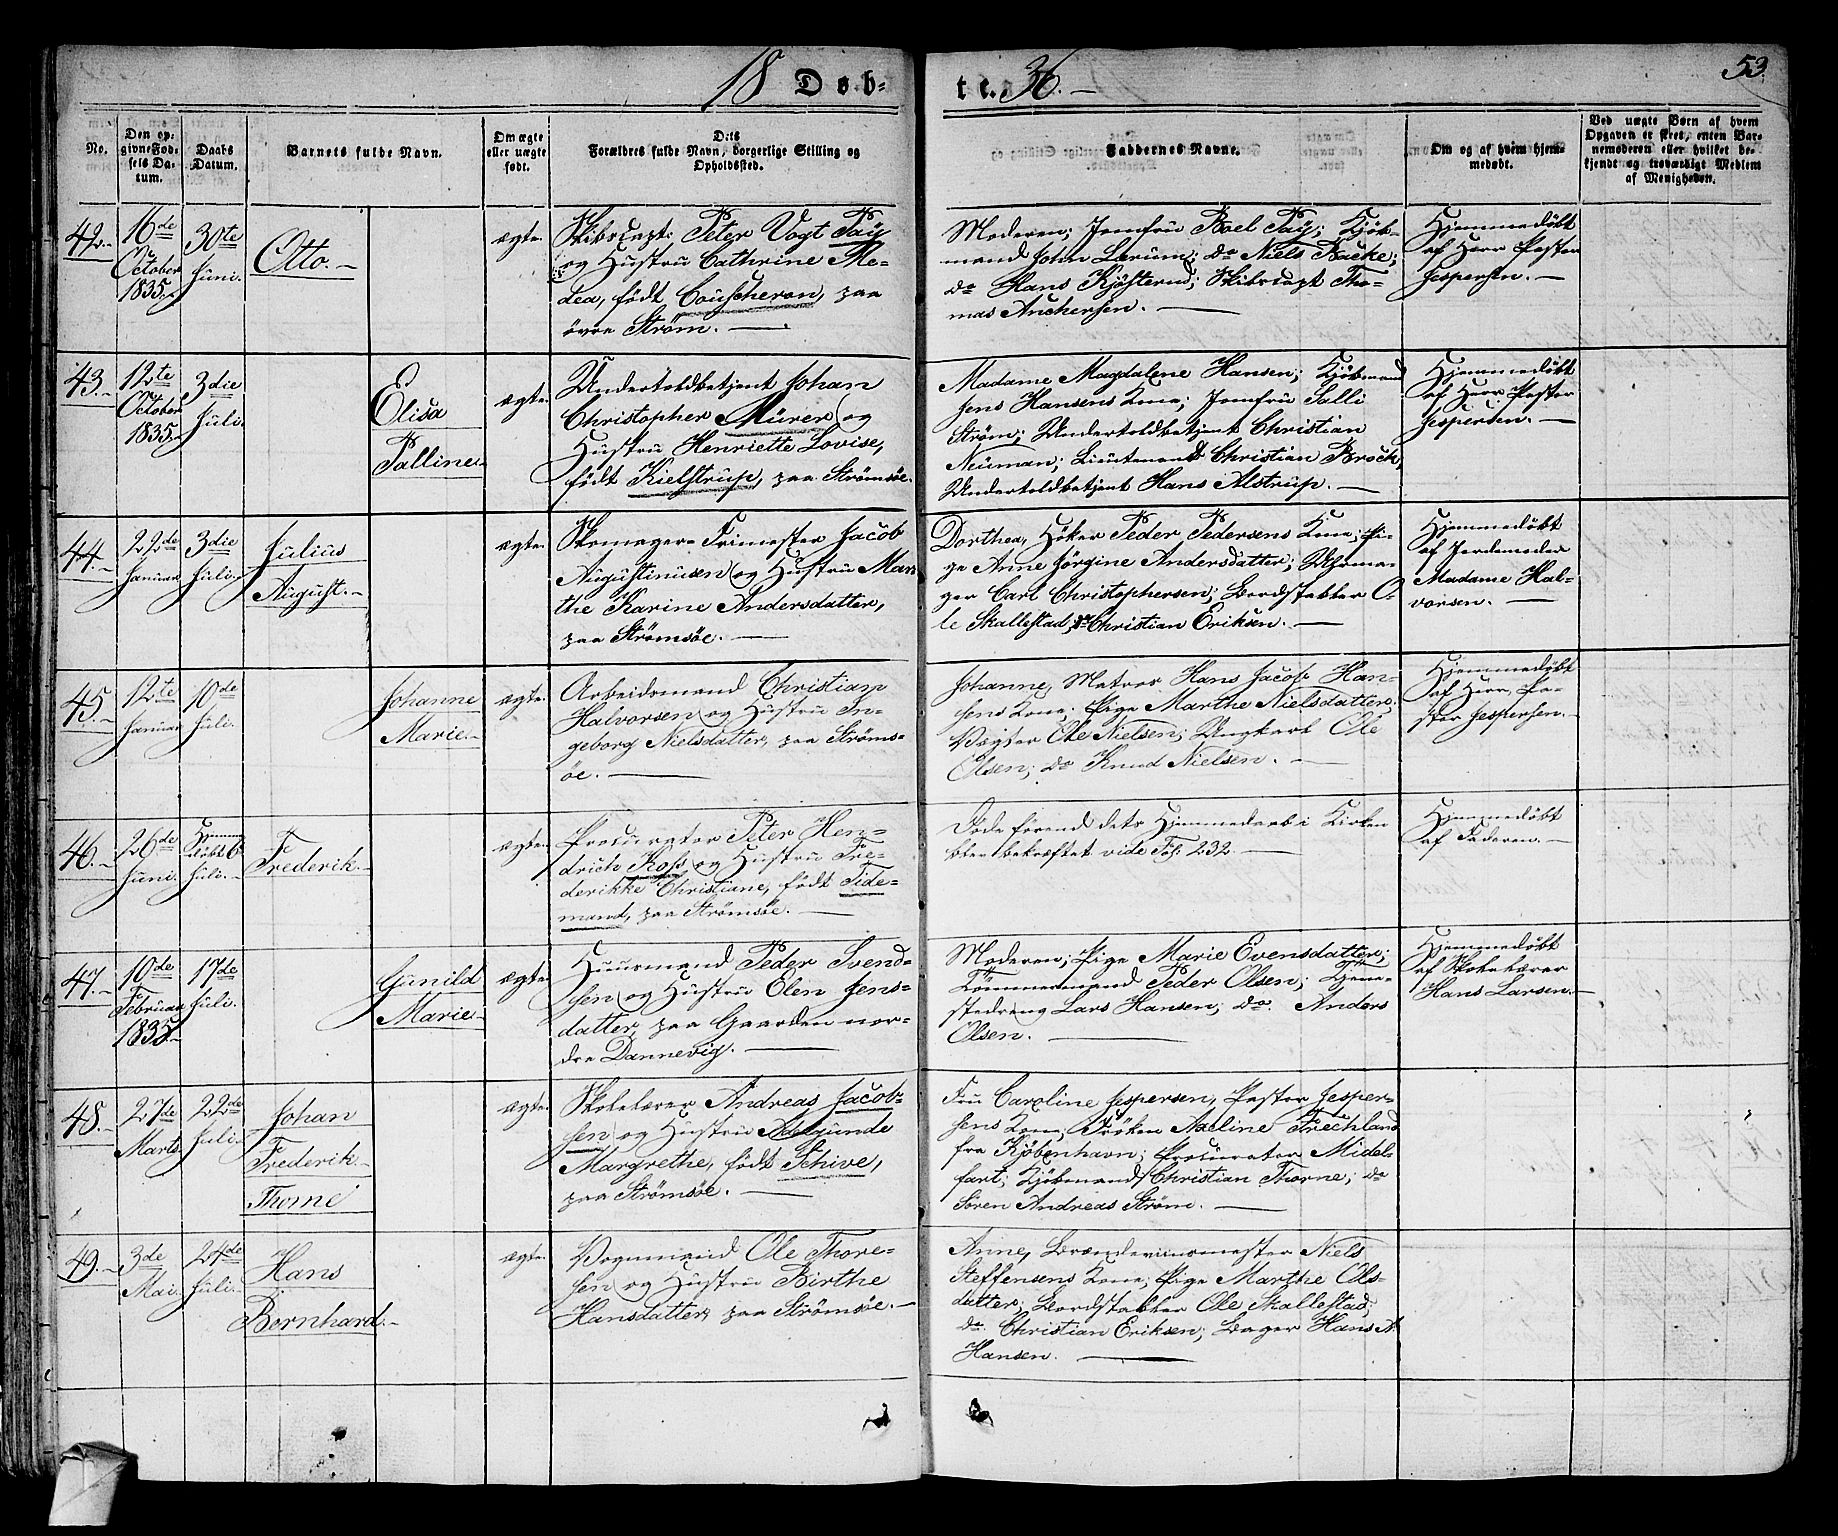 18 Døb-
te. 36.-
53.
No.
Den op-
givne Fød-
sels Da-
tum.
Daabs
Datum.
Barnets fulde Navn.
Om ægte
eller uægte
født.
Dets
Forældres fulde Navn, borgerlige Stilling og
Opholdssted.
Faddernes Navne.
Om og af hvem hjem-
medøbt.
Ved uægte Børn af hvem
Opgaven er skeet, enten Bar-
nemoderen eller hvilket be-
kjendt og troværdigt Medlem
af Menigheden.
42.-
16de
October
1835.-
30te
Juni.
Otto.-
ægte.
Skibscapt: Peter Vogt Paÿ
og Hustru Cathrine Me-
dea, født Couscheron, paa
øvre Strøm.-
Moderen; Jomfru Boel Paÿ; Kjøb-
mand John Lerum; do Niels Backe;
do Hans Kjøsterud; Skibscapt Tho-
mas Anchersen.-
Hjemmedøbt
af Herr Pastor
Jespersen.-
43.-
12te
October
1835.-
3die
Juli.
Elisa
Palline.-
ægte.
Undertoldbetjent Johan
Christopher Mürer og
Hustru Henriette Lovise,
født Kielstrup, paa Strømsøe.
Madame Magdalene Hansen; Kjøbmand
Jens Hansens Kone; Jomfru Salli
Strøm; Undertoldbetjent Christian
Neuman; Lieutenant Christian Brock,
Undertoldbetjent Hans Alstrup.-
Hjemmedøbt
af Herr Pastor
Jespersen.-
44.-
22de
Januar
3die
Juli.
Julius
August.-
ægte.
Skomager-Frimester Jacob
Augustinusen og Hustru Mar-
the Karine Andersdatter,
paa Strømsøe.-
Dorthea, Høker Peder Pedersens Kone; Pi-
ge Anne Jørgine Andersdatter; Uhrma-
ger Carl Christophersen; Bordstabler O-
le Skallestad; do Christian Eriksen.-
Hjemmedøbt
af Jordemoder
Madame Hal-
vorsen.-
45.-
12te
Januar
10de
Juli.
Johanne
Marie.-
ægte.
Arbeidsmand Christian
Halvorsen og Hustru In-
geborg Nielsdatter, paa Strøms-
øe.-
Johanne, Matros Hans Jacob Han-
sens Kone; Pige Marthe Nielsdatter;
Vægter Ole Nielsen; Ungkarl Ole
Olsen; do Knud Nielsen.-
Hjemmedøbt
af Herr Pa-
stor Jespersen.-
46.-
26de
Juni.
Hjemme
døbt 6
Juli.-
Frederik.-
ægte.
Procurator Peter Hen-
drich Koss og Hustru Fre-
derikke Christiane, født Tide-
mand, paa Strømsøe.-
Døde førend dets Hjemmedaab i Kirken
blev bekræftet vide Fol: 232.
Hjemmedøbt
af Faderen.-
47.-
10de
Februar
1835.-
17de
Juli.
Gunild
Marie.-
ægte.
Huusmand Peder Svend-
sen og Hustru Olen Jens-
datter, paa Gaarden nor-
dre Dannevig.-
Moderen; Pige Marie Evensdatter;
Tømmermand Peder Olsen; Tjene-
stedreng Lars Hansen; do. Anders
Olsen.-
Hjemmedøbt
af Skolelærer
Hans Larsen.-
48.-
27de
Marts
22de
Juli.
Johan
Frederik.-
Thorne
ægte.
Skolelærer Andreas Jacob-
sen og Hustru Adelgunde
Margrethe, født Schive,
paa Strømsøe.-
Fru Caroline Jespersen, Pastor Jesper-
sens Kone; Frøken Naeline Frechland
fra Kjøbenhavn; Procurator Midel-
fart; Kjøbmand Christian Thorne; do
Søren Andreas Strøm.-
49.-
3de
Mai.
24de
Juli.
Hans
Bernhard.-
ægte.
Vognmand Ole Thore-
sen og Hustru Birthe
Hansdatter, paa Strømsøe.-
Anne, Brændeviinsmester Niels
Steffensens Kone; Pige Marthe Ols-
datter; Bordstabler Ole Skallestad;
do. Christian Eriksen; Bager Hans A.
Hansen.-